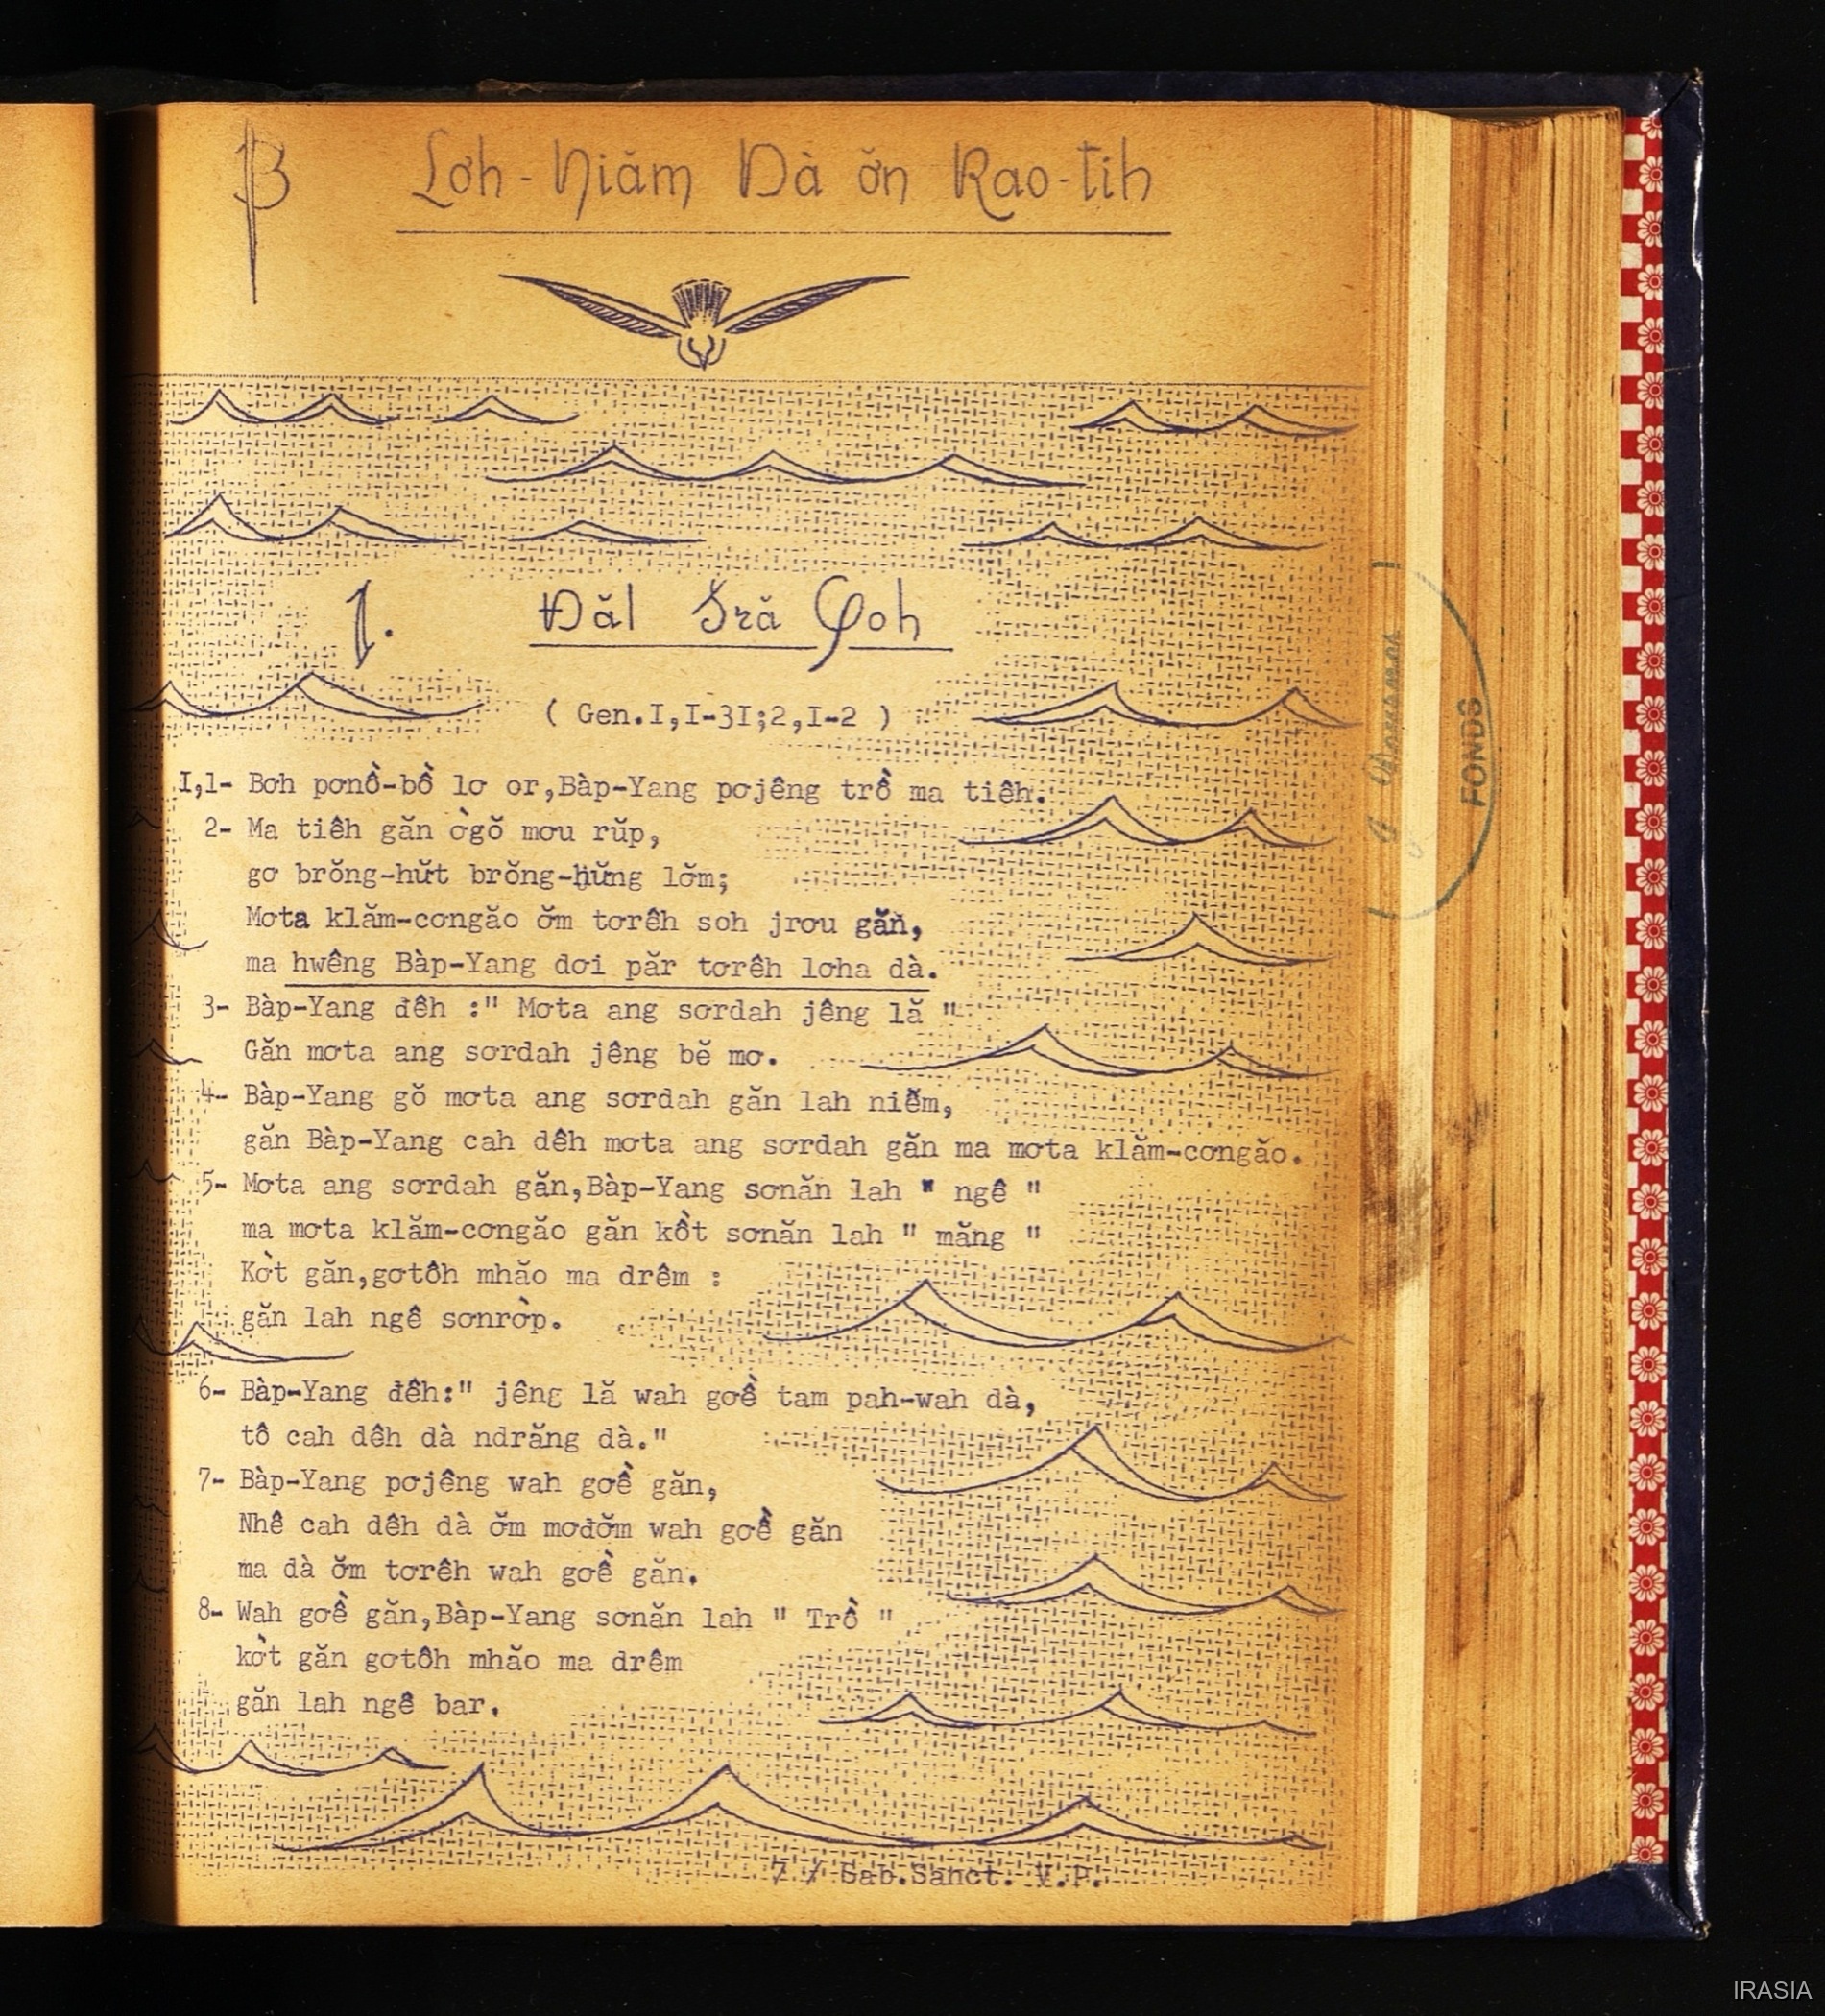 B Lơh-Niăm Dà ơ̆n Rao-tih
1. Đăl Sră Goh
( Gen.I,I-3I;2,I-2 )
I,1- Bơh pơnồ-bồ lơ or,Bàp-Yang pơjêng trồ ma tiêh.
2- Ma tiêh găn ờgŏ mơu rŭp,
gơ brŏng-hŭt brŏng-hŭng lơ̆m;
Mơta klăm-cơngăo ơ̆m tơrêh soh jrơu găn,
ma hwêng Bàp-Yang dơi păr tơrêh lơha dà.
3- Bàp-Yang đêh :" Mơta ang sơrdah jêng lă "
Găn mơta ang sơrdah jêng bĕ mơ.
4- Bàp-Yang gŏ mơta ang sơrdah găn lah niĕm,
găn Bàp-Yang cah dêh mơta ang sơrdah găn ma mơta klăm-cơngăo.
5- Mơta ang sơrdah găn,Bàp-Yang sơnăn lah " ngê "
ma mơta klăm-cơngăo găn kồt sơnăn lah " măng "
Kờt găn,gơtôh mhăo ma drêm :
găn lah ngê sơnrờp.
6- Bàp-Yang đêh:" jêng lă wah gơề tam pah-wah dà,
tô cah dêh dà ndrăng dà."
7- Bàp-Yang pơjêng wah gơề găn,
Nhê cah dêh dà ơ̆m mơđơ̆m wah gơề găn
ma dà ơ̆m tơrêh wah gơề găn.
8- Wah gơề găn,Bàp-Yang sơnăn lah " Trồ "
kờt găn gơtôh mhăo ma drêm
găn lah ngê bar.
7 / Sab.Sanct. V.P.
FONDS
IRASIA